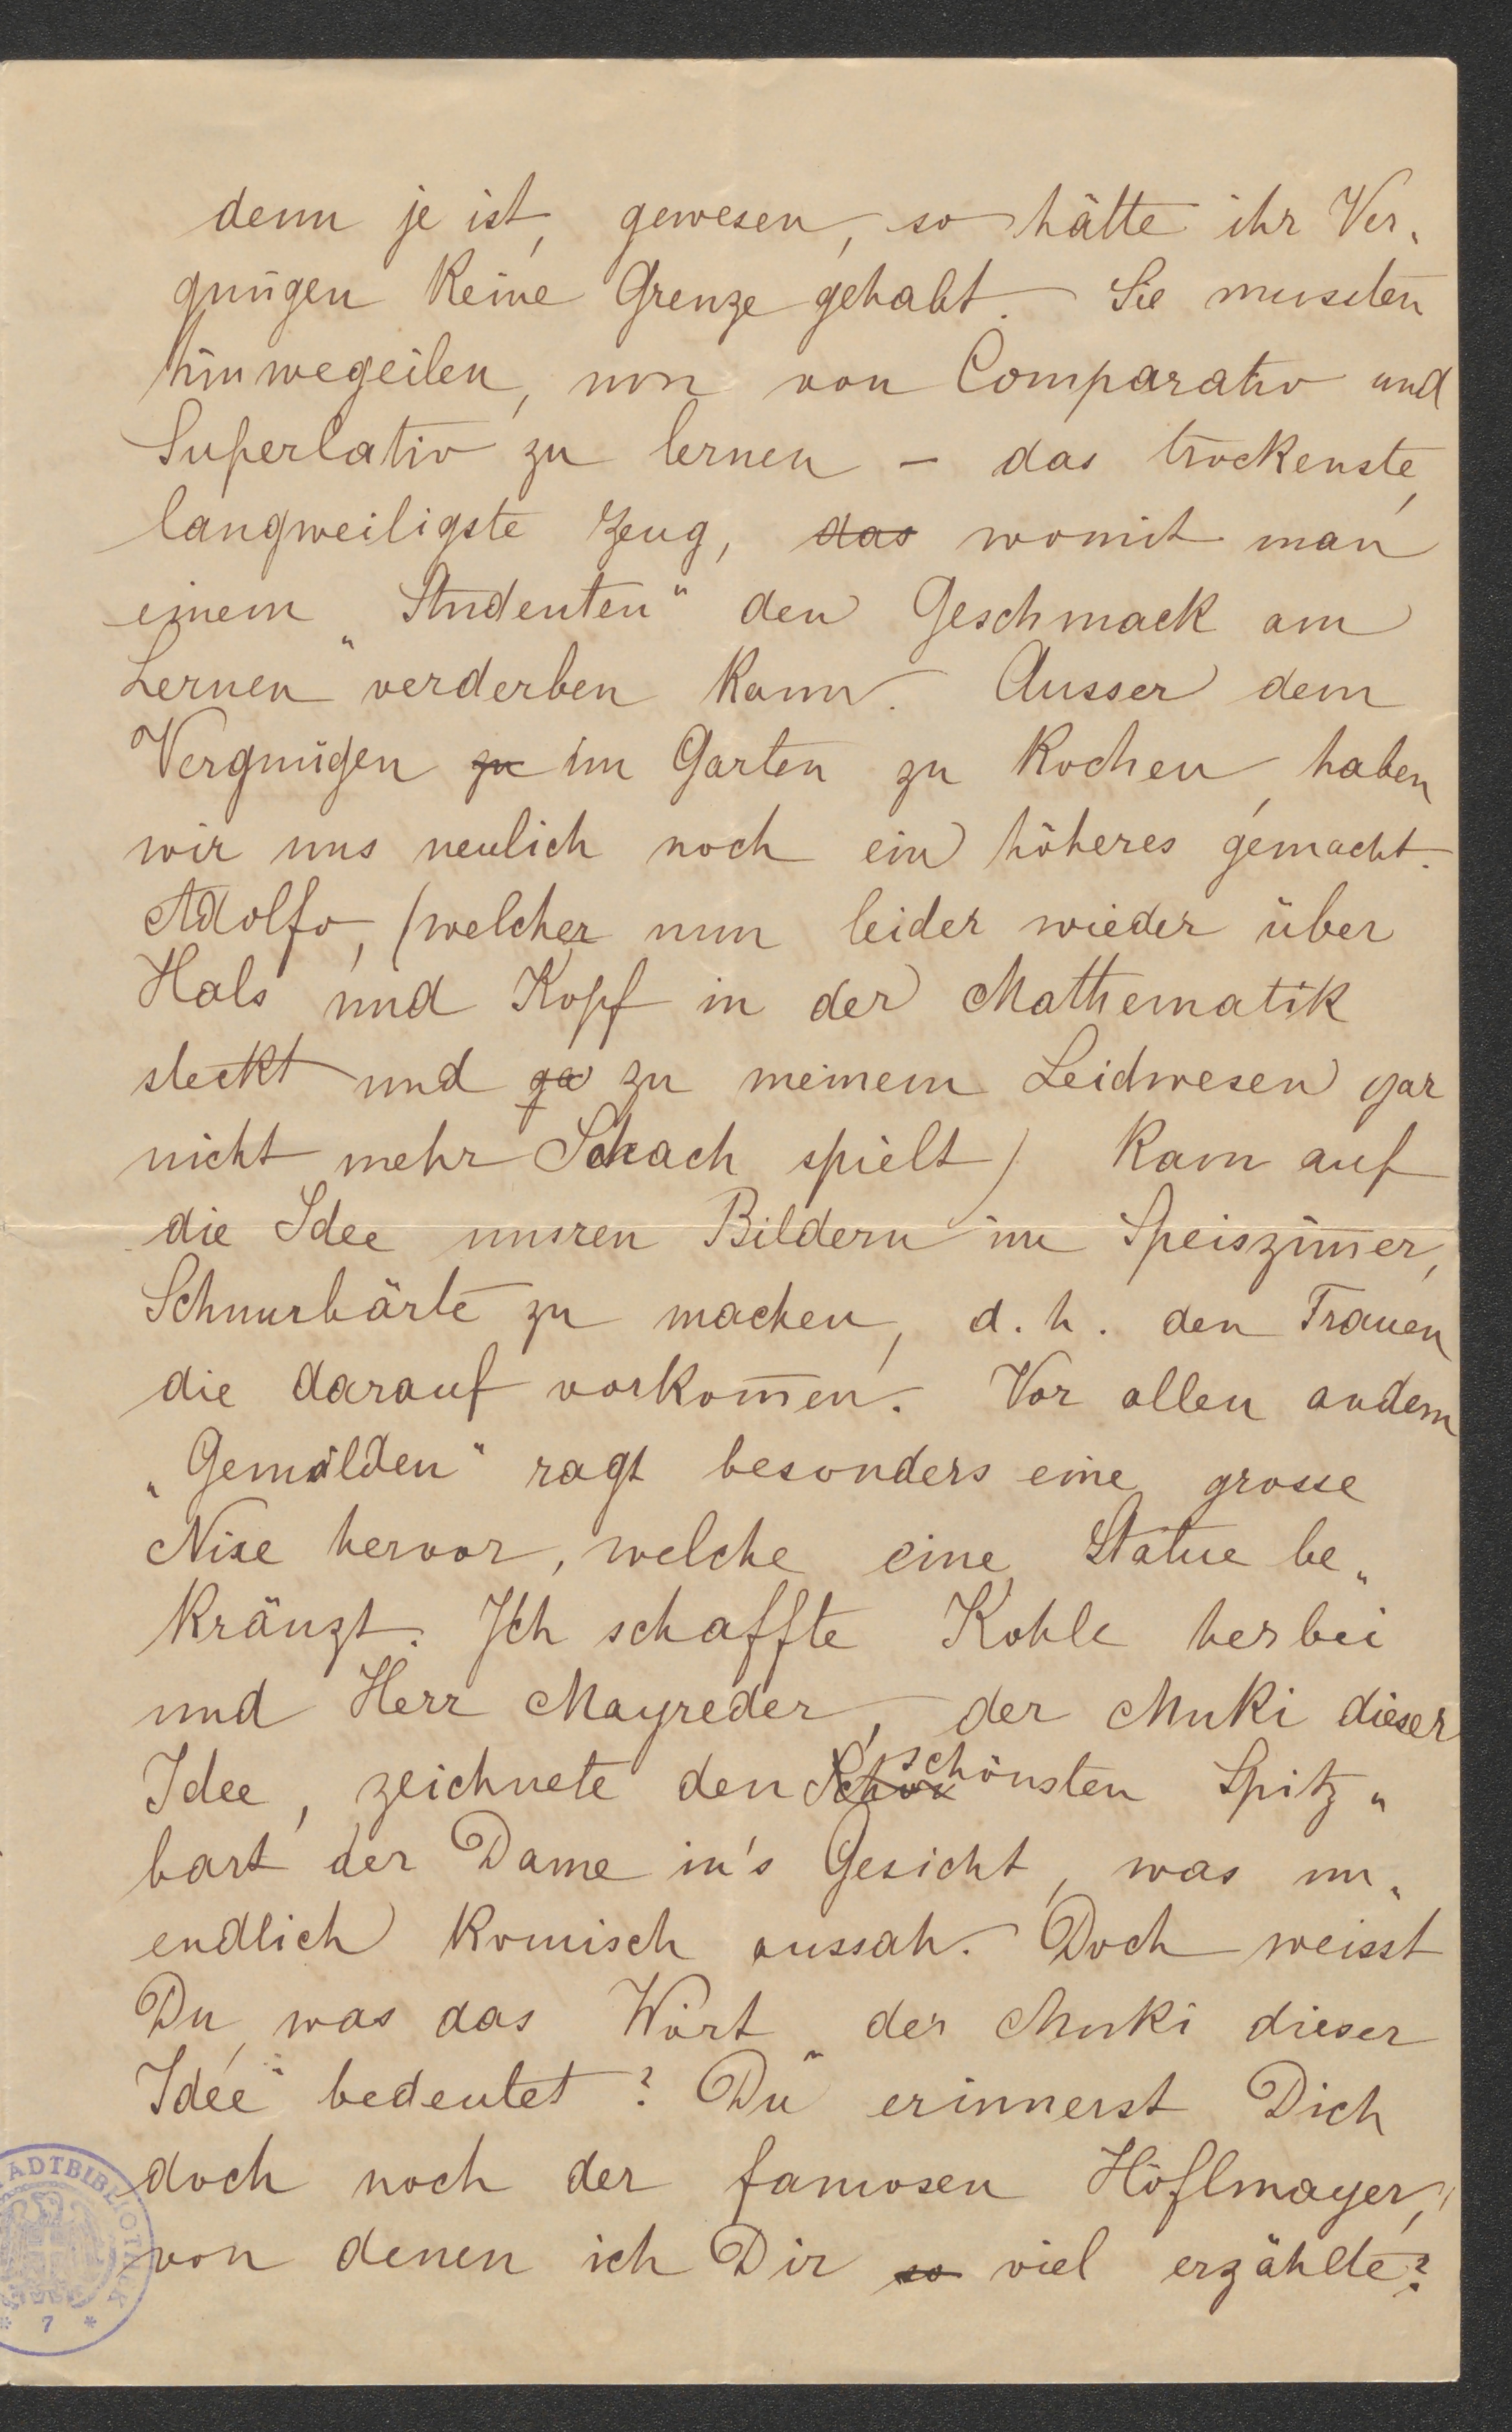 denn je ist, gewesen, so hätte ihr Ver„
gnügen keine Grenze gehabt. Sie mussten
hinwegeilen, um von Comparativ und
Superlativ zu lernen – das trockenste,
langweiligste Zeug, das womit man
einem „Studenten“ den Geschmack am
Lernen verderben kann. Ausser dem
Vergnügen zu im Garten zu kochen, haben
wir uns neulich noch ein höheres gemacht.
Adolfo, (welcher nun leider wieder über
Hals und Kopf in der Mathematik
steckt und ga zu meinem Leidwesen gar
nicht mehr Schach spielt) kam auf
die Idee unsren Bildern im Speiszim̅er,
Schnurbärte zu machen, d. h. den Frauen
die darauf vorkom̅en. Vor allen andern
„Gemälden“ ragt besonders eine grosse
Nixe hervor, welche eine Statue be„
kränzt. Ich schaffte Kohle herbei
und Herr Mayreder, der Muki dieser
Idee, zeichnete den schönsten Spitz„
bart der Dame in's Gesicht, was un„
endlich komisch aussah. Doch weisst
Du, was das Wort „der Muki dieser
Idee“ bedeutet? Du erinnerst Dich
doch noch der famosen Höflmayer,
von denen ich Dir so viel erzählte?
STADTBIBLIOTHEK
* 7 *